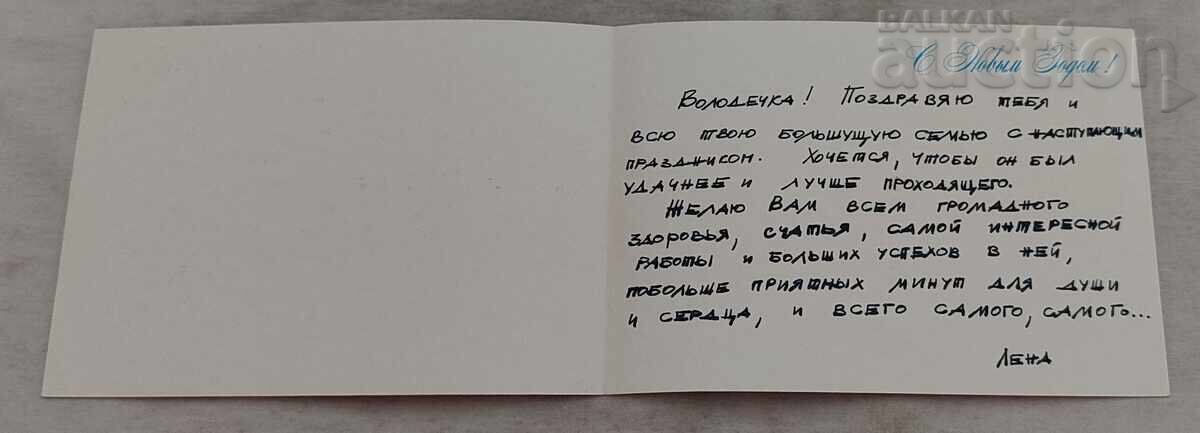 BALKAN
auction
С Новым Годом!
ВОЛОДЕЧКА! ПОЗДРАВЯЮ ТЕБЯ И
ВСЮ ТВОЮ БОЛЬШУЩУЮ СЕМЬЮ С НАСТУПАЮЩИМ
ПРАЗДНИКОМ. ХОЧЕТСЯ, ЧТОБЫ ОН БЫЛ
УДАЧНЕЕ И ЛУЧШЕ ПРОХОДЯЩЕГО.
ЖЕЛАЮ ВАМ ВСЕМ ГРОМАДНОГО
ЗДОРОВЬЯ, СЧАТЬЯ, САМОЙ ИНТЕРЕСНОЙ
РАБОТЫ И БОЛЬШИХ УСПЕХОВ В НЕЙ,
ПОБОЛЬШЕ ПРИЯТНЫХ МИНУТ ДЛЯ ДУШИ
И СЕРДЦА, И ВСЕГО САМОГО, САМОГО...
ЛЕНА